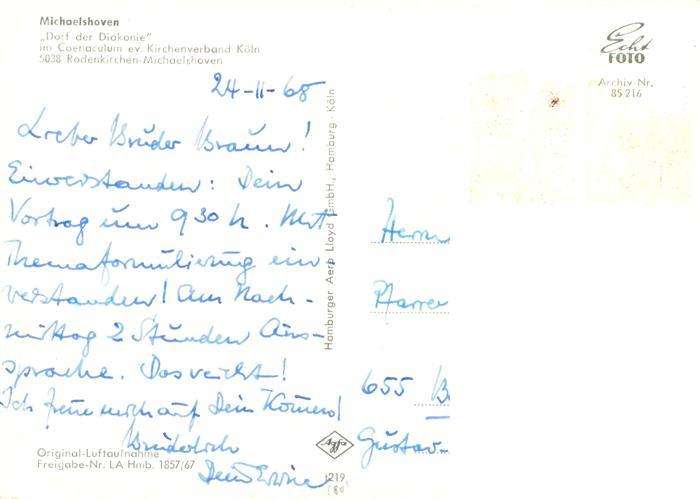 Michaelshoven
„Dorf der Diakonie"
im Coenaculum ev. Kirchenverband Köln
5038 Rodenkirchen-Michaelshoven
24-11-68
Lieber Bruder Braun!
Einverstanden: Dein
Vortrag um 9 30 h. Mit
Themaformulierung ein-
verstanden! Am Nach-
mittag 2 Stunden Aus-
sprache. Das reicht!
Ich freue mich auf Dein Kommen!
Brüderlich
Dein Erwin
Original-Luftaufnahme
Freigabe-Nr. LA Hmb. 1857/67
Hamburger Aero Lloyd GmbH., Hamburg · Köln
Agfa
L219
Echt
FOTO
Archiv-Nr.
85 216
Herrn
Pfarrer
655 B
Gustav-